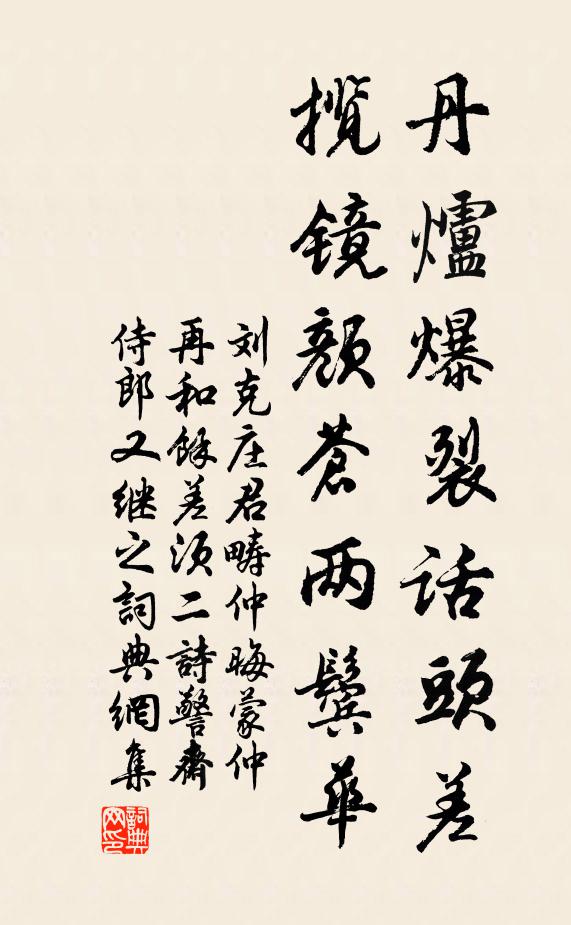 丹爐爆裂話頭差
攬镜顏蒼两鬓華
刘克庄君畴仲晦蒙仲
再和餘差须二詩警齋
侍郎又继之詞典網集
詞典
网印